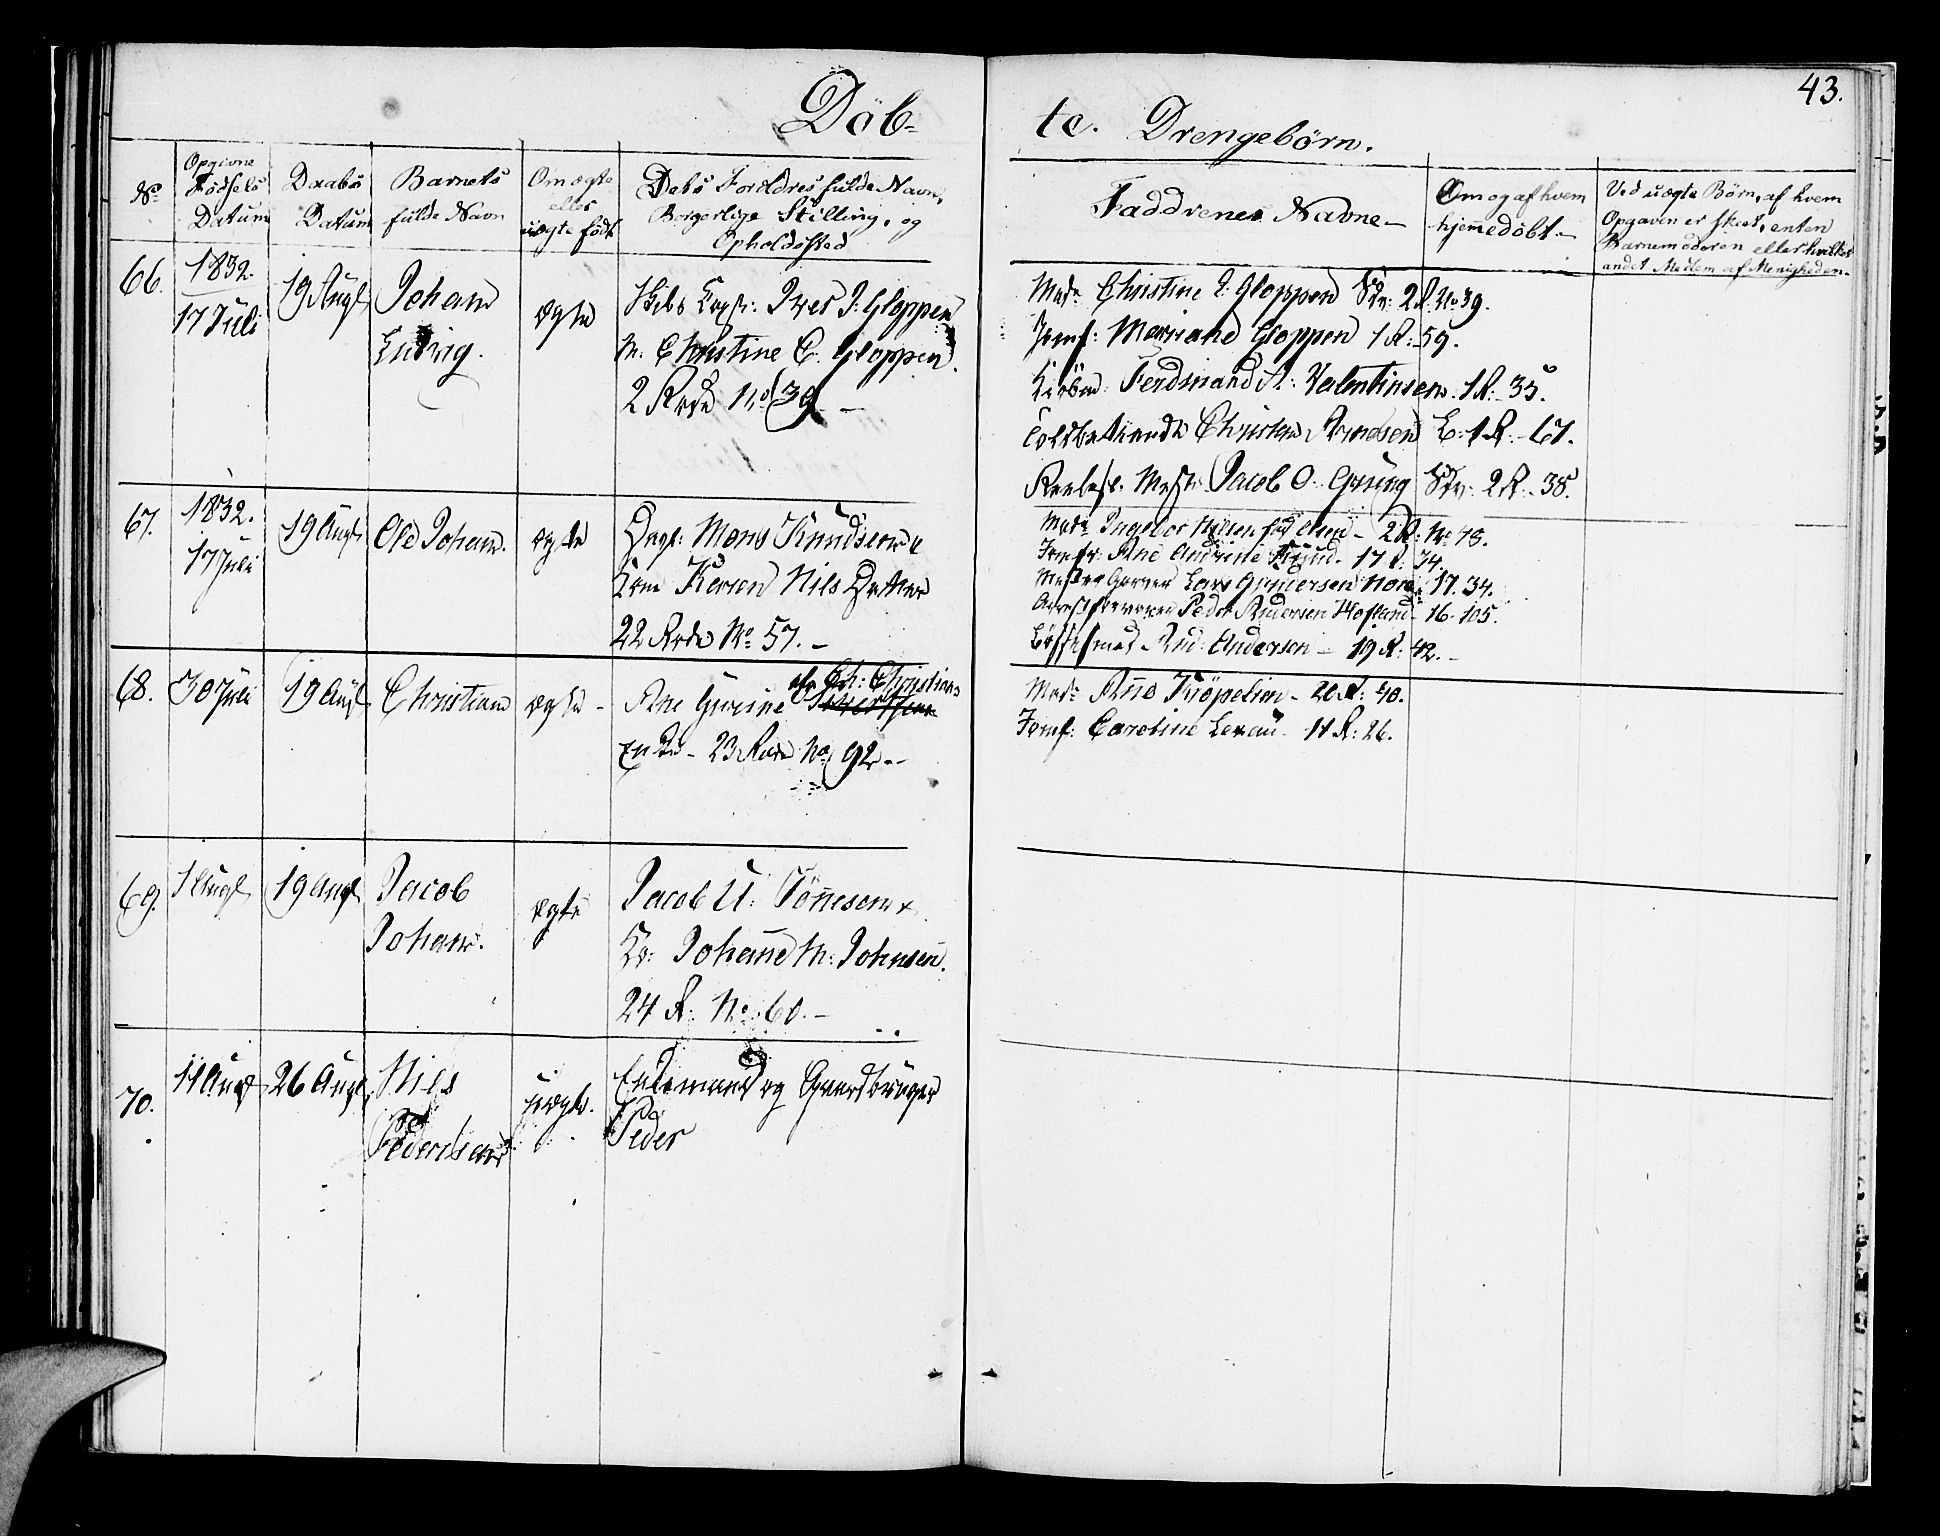 43.
Döb-
te. Drengebörn.
No
Opgivne
Födsels
Datum
Daabs
Datum
Barnets
fulde Navn
Om ægte
eller
uægte födt
Dets Foreldres fulde Navn,
Borgerlige Stilling, og
Opholdssted
Faddrenes Navne -
Om og af hvem
hjemedöbt -
Ved uægte Börn, af hvem
Opgaven er skeet, enten
Barnemoderen eller hvilket
andet Medlem af Menigheden.
66.
1832.
17 Juli
19 Augt
Johan
Ludvig.
ægte
Skibs Capt: Iver J: Gloppen
M. Christine C. Gloppen.
2 Rode No 39 -
Mad. Christine E: Gloppen 2 R. No 39.
Jomf: Mariane Gloppen 1 R: 59.
Ferdinand A: Valentinsen. 1 R: 35.
Christen Arnesen 1 R. - 67.
Jacob O. Grung 2 R. 38.
67.
1832.
17 Juli
19 Augt
Ole Johan.
ægte
Mons Knudsen &
Kone Karen Nils Datter
22 Rode No 57. -
Mad. Ingebor Nilsen föd Olsen - 2 R: No 48.
Jomfr: Ane Andrine 17 R: 74.
Mester Garver Lars Gundersen 17. 34.
Peder Andersen Hofland - 16. 105.
And: Andersen - 19 R: 42. -
68.
30 Juli
19 Augt
Christian
ægte -
Ane Gurine
Ch: Christians
Enke - 23 Rode No 92. -
Mad. Ane Kröpelien - 20 R: 40.
Jomf: Caroline Lexau - 11 R: 26.
69.
1 Augt
19 Augt
Jacob
Johan.
ægte
Jacob U: Tönnesen &
K: Johanne M: Johnsen.
24 R. No 60. -
70.
11 Augt
26 Augt
Nils
Pedersen
uægte.
Enkemand og Gaardbruger
Peder